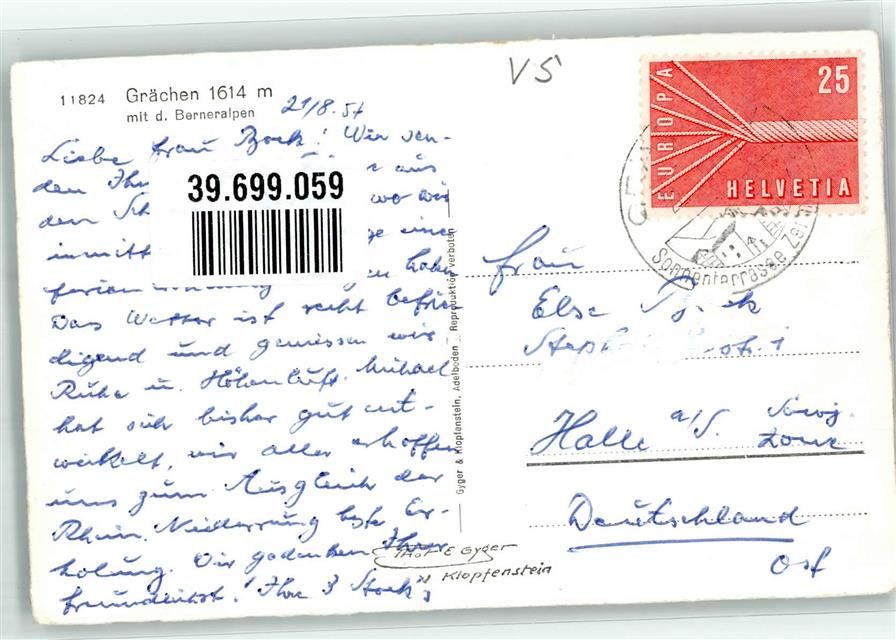 VS
11824 Grächen 1614 m
mit d. Berneralpen
21/8.57
Liebe Frau Bock! Wir sen-
den Ihn aus
den Sch wo wir
inmitt ge einen
ferien haben
Das Wetter ist recht befrie
digend und geniessen wir
Ruhe u. Höhenluft. Michael
hat sich bisher gut ent-
wickelt, wir alle erhoffen
uns zum Ausgleich der
Rhein Niederung beste Er-
holung. Wir gedenken Ihrer
freundlichst! Ihre 3 Stock
39.699.059
Gyger & Klopfenstein, Adelboden. Reproduktion verboten
EUROPA
25
HELVETIA
Sonnenterrasse Zer
Frau
Else
Halle a/S.
zone
Deutschland
Ost
Phot E Gyger
Klopfenstein